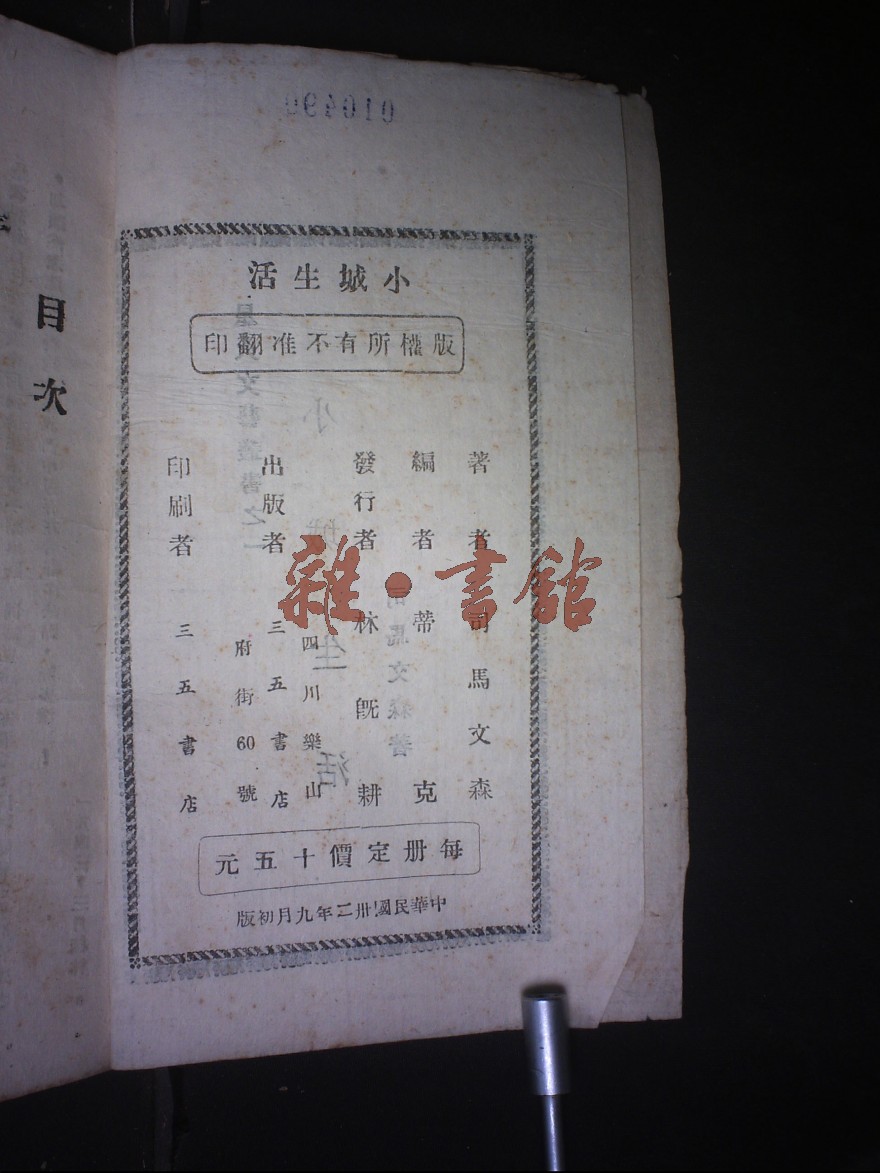 小城生活
版權所有不准翻印
著者 司馬文森
編者 蒂克
發行者 林旣耕
出版者 三五書店
四川樂山
府街60號
印刷者 三五書店
每册定價十五元
中華民國卅二年九月初版
雜·書舘
目次